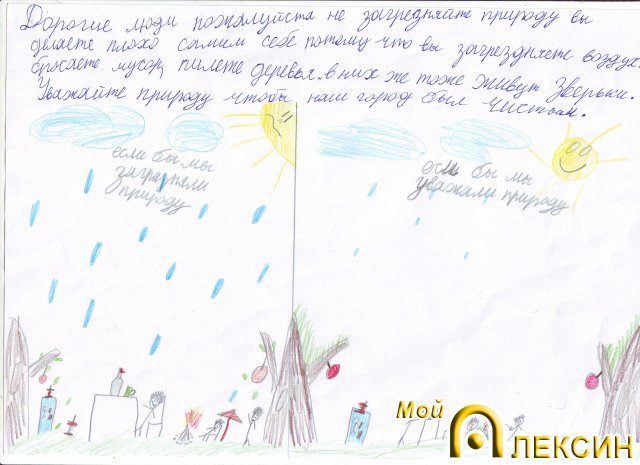 Дорогие люди пожалуйста не загрезняйте природу вы
делаете плохо самим себе потому что вы загрездняете воздух.
бросаете мусор, пилете деревья. в них же тоже живут зверьки.
Уважайте природу чтобы наш город был чистым.
если бы мы
загрязняли
природу
если бы мы
уважали природу
Мой
Алексин